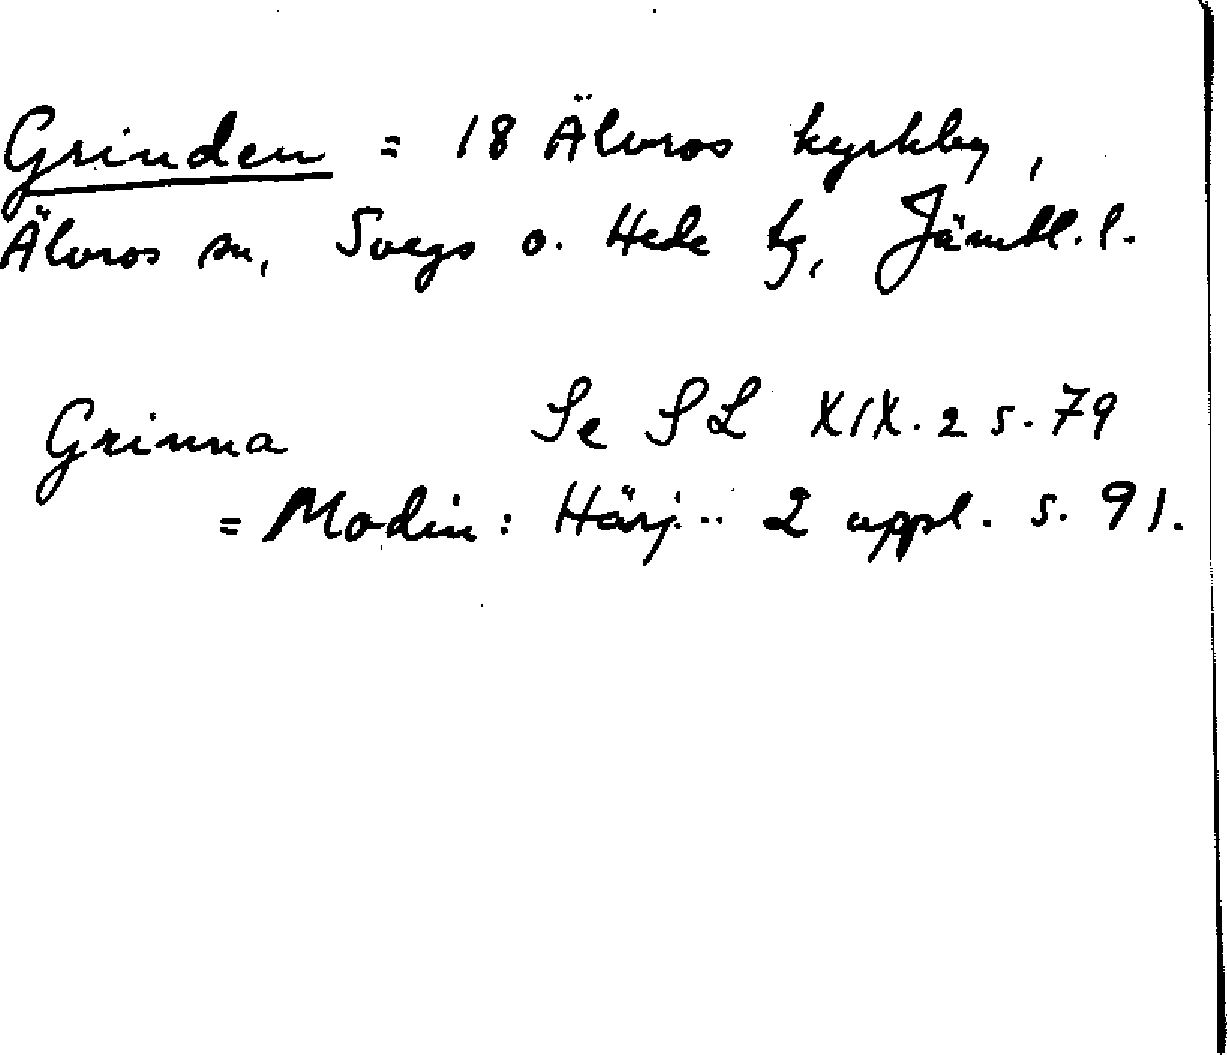 Grinden = 18 Älvros kyrkby,
Älvros sn, Svegs o. Hede tg, Jämtl. l.
Grinna Se SL XIX.2 s. 79
= Modin: Härj... 2 uppl. s. 91.